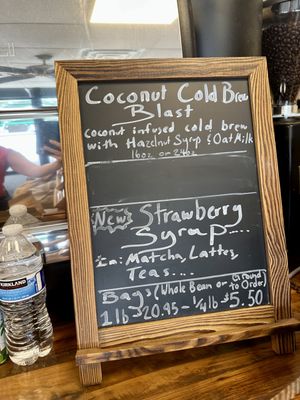 Coconut Cold Brew
Blast
coconut infused cold brew
with Hazelnut Syrup & Oat Milk
16oz or 24oz
New Strawberry
Syrup....
In: Matcha, Lattes,
Teas...
Bags (Whole Bean or Ground to Order)
1 lb - 20.95 - 1/4 lb - $5.50
KIRKLAND